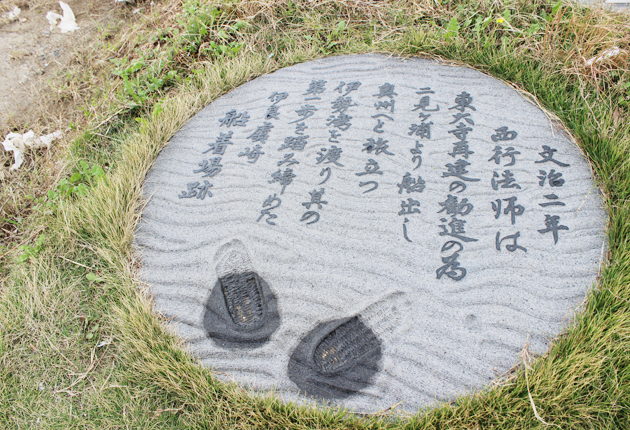 文治二年
西行法師は
東大寺再建の勧進の為
二見ヶ浦より船出し
奥州へと旅立つ
伊勢湾を渡り其の
第一歩を踏み締めた
伊良湖崎
船着場跡